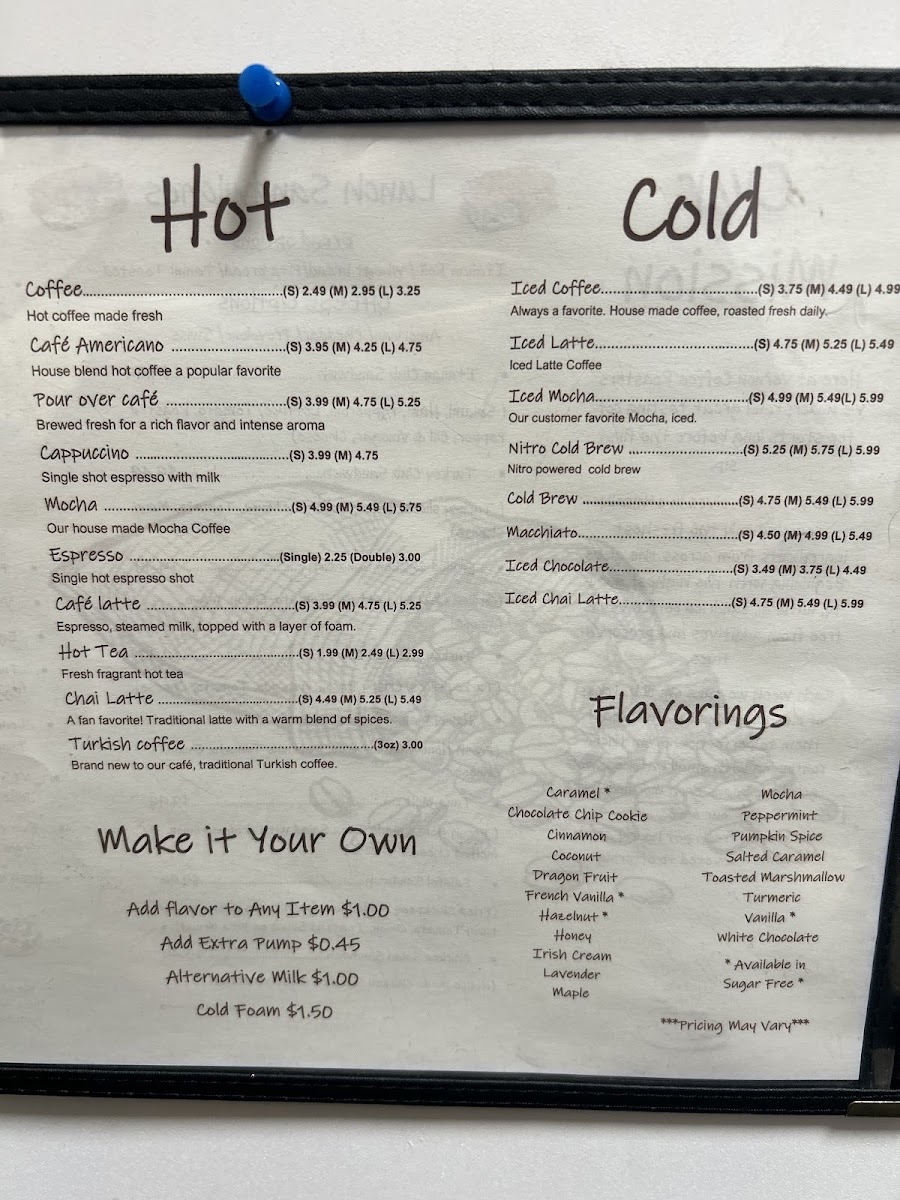 Hot
Coffee.....................................................(S) 2.49 (M) 2.95 (L) 3.25
Hot coffee made fresh
Café Americano ..............................(S) 3.95 (M) 4.25 (L) 4.75
House blend hot coffee a popular favorite
Pour over café ................................(S) 3.99 (M) 4.75 (L) 5.25
Brewed fresh for a rich flavor and intense aroma
Cappuccino ........................................(S) 3.99 (M) 4.75
Single shot espresso with milk
Mocha ................................................(S) 4.99 (M) 5.49 (L) 5.75
Our house made Mocha Coffee
Espresso .......................................(Single) 2.25 (Double) 3.00
Single hot espresso shot
Café latte ......................................(S) 3.99 (M) 4.75 (L) 5.25
Espresso, steamed milk, topped with a layer of foam.
Hot Tea ...........................................(S) 1.99 (M) 2.49 (L) 2.99
Fresh fragrant hot tea
Chai Latte .....................................(S) 4.49 (M) 5.25 (L) 5.49
A fan favorite! Traditional latte with a warm blend of spices.
Turkish coffee ................................................(3oz) 3.00
Brand new to our café, traditional Turkish coffee.
Make it Your Own
Add flavor to Any Item $1.00
Add Extra Pump $0.45
Alternative Milk $1.00
Cold Foam $1.50
Cold
Iced Coffee.........................................(S) 3.75 (M) 4.49 (L) 4.99
Always a favorite. House made coffee, roasted fresh daily.
Iced Latte..........................................(S) 4.75 (M) 5.25 (L) 5.49
Iced Latte Coffee
Iced Mocha.........................................(S) 4.99 (M) 5.49(L) 5.99
Our customer favorite Mocha, iced.
Nitro Cold Brew ..............................(S) 5.25 (M) 5.75 (L) 5.99
Nitro powered cold brew
Cold Brew .........................................(S) 4.75 (M) 5.49 (L) 5.99
Macchiato..........................................(S) 4.50 (M) 4.99 (L) 5.49
Iced Chocolate.................................(S) 3.49 (M) 3.75 (L) 4.49
Iced Chai Latte..............................(S) 4.75 (M) 5.49 (L) 5.99
Flavorings
Caramel *
Chocolate Chip Cookie
Cinnamon
Coconut
Dragon Fruit
French Vanilla *
Hazelnut *
Honey
Irish Cream
Lavender
Maple
Mocha
Peppermint
Pumpkin Spice
Salted Caramel
Toasted Marshmallow
Turmeric
Vanilla *
White Chocolate
* Available in
Sugar Free *
***Pricing May Vary***